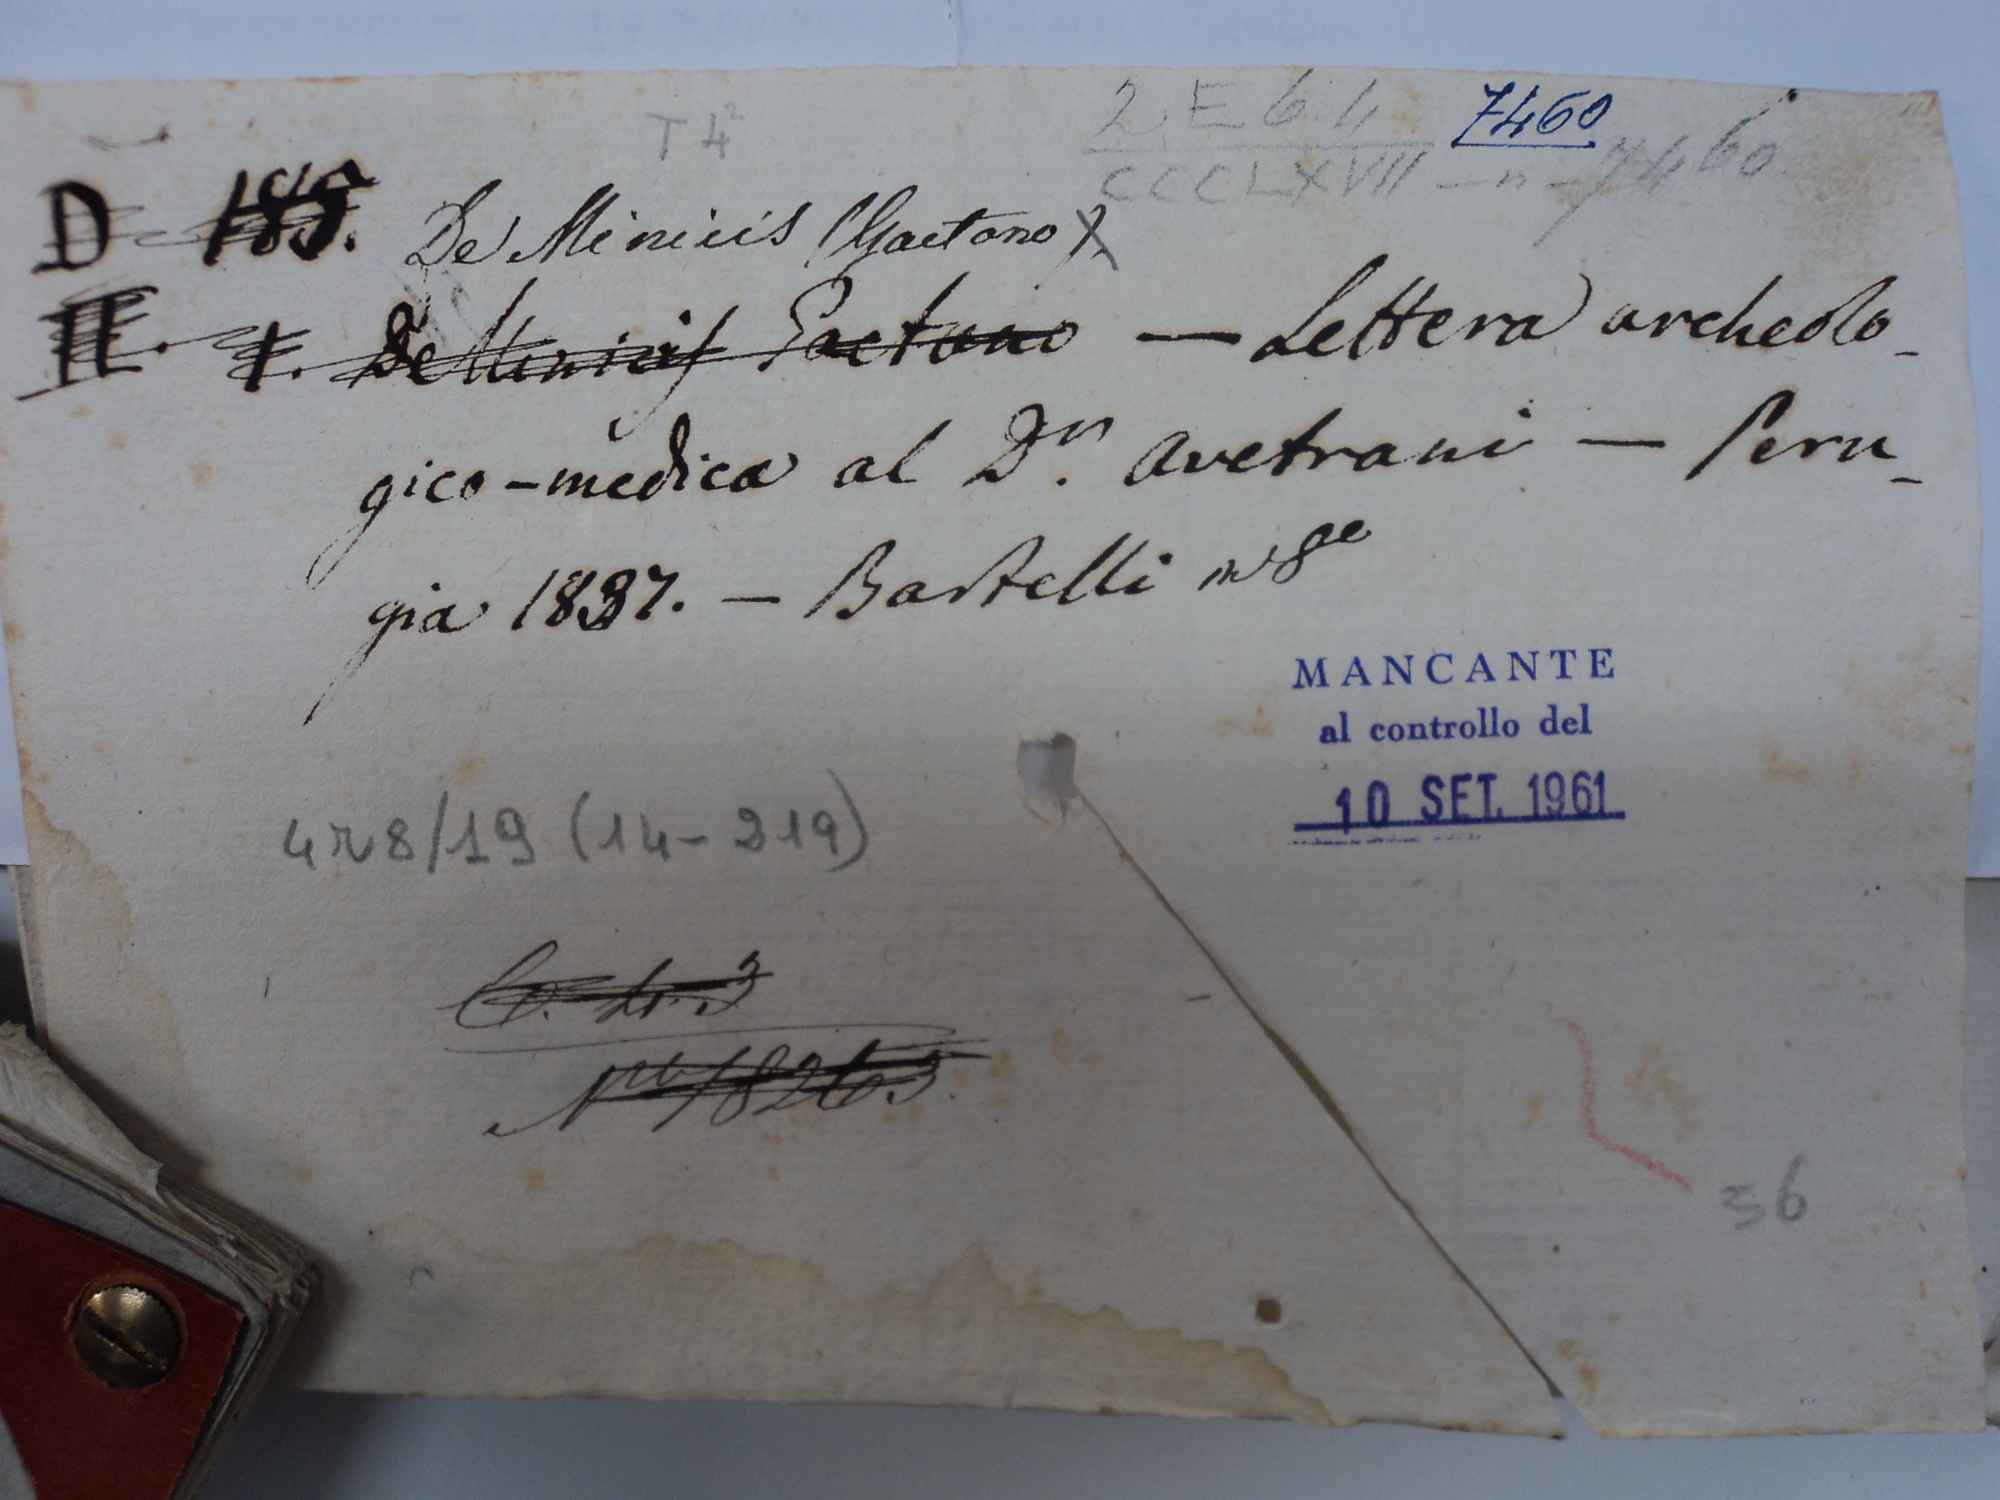 T 4²
2 E 6 4 7460
CCCLXVII - n - 7460
D 185. De Minicis (Gaetano)
II. 1. De Minicis Gaetano — Lettera archeolo-
gico-medica al Dr. Avetrani — Peru-
gia 1837. — Bartelli in 8ve
MANCANTE
al controllo del
10 SET. 1961
428/19 (14-219)
Nro 18263.
56